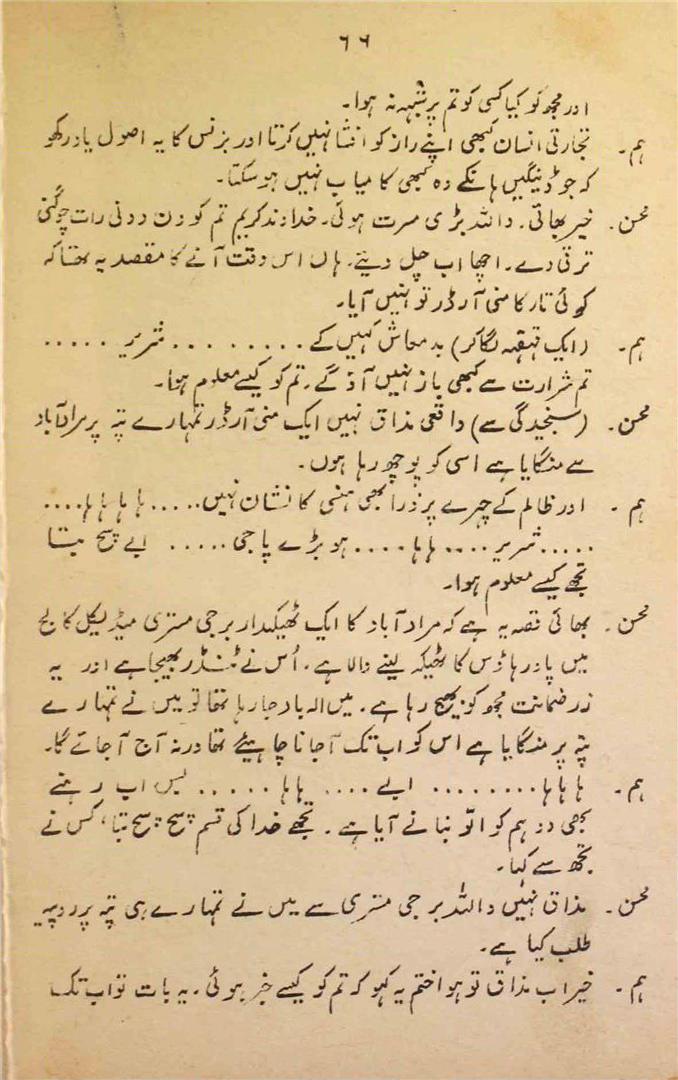 ۶۶
اور مجھ کو کیا کسی کو تم پر شبہہ نہ ہوا۔
ہم۔ تجارتی انسان کبھی اپنے راز کو افشا نہیں کرتا اور بزنس کا یہ اصول یاد رکھو
کہ جو ڈینگیں ہانکے وہ کبھی کامیاب نہیں ہو سکتا۔
محسن۔ خیر بھائی۔ واللہ بڑی مسرت ہوئی۔ خداوند کریم تم کو دن دونی رات چوگنی
ترقی دے۔ اچھا اب چل دیئے۔ ہاں اس وقت آنے کا مقصد یہ تھا کہ
کوئی تار کا منی آرڈر تو نہیں آیا۔
ہم۔ (ایک قہقہہ لگا کر) بدمعاش کہیں کے ......... شریر .....
تم شرارت سے کبھی باز نہیں آؤ گے۔ تم کو کیسے معلوم ہوا۔
محسن۔ (سنجیدگی سے) واقعی مذاق نہیں ایک منی آرڈر تمہارے پتہ پر مرادآباد
سے منگایا ہے اسی کو پوچھ رہا ہوں۔
ہم۔ اور ظالم کے چہرے پر ذرا بھی ہنسی کا نشان نہیں..... ہا ہا ہا ہا....
..... شریر .... ہا ہا .... ہو بڑے پاجی ..... ابے سچ بتا
تجھے کیسے معلوم ہوا۔
محسن۔ بھائی قصہ یہ ہے کہ مراد آباد کا ایک ٹھیکیدار برجی مستری میڈیکل کالج
میں پاور ہاؤس کا ٹھیکہ لینے والا ہے۔ اُس نے ٹنڈر بھیجا ہے اور یہ
زر ضمانت مجھ کو بھیج رہا ہے۔ میں الہ باد جا رہا تھا تو میں نے تمہارے
پتہ پر منگایا ہے اس کو اب تک آ جانا چاہیئے تھا ورنہ آج آ جائے گا۔
ہم۔ ہا ہا ہا ........ ابے .... ہا ہا ..... بس اب رہنے
بھی دو ہم کو الّو بنانے آیا ہے۔ تجھے خدا کی قسم سچ سچ بتا، کس نے
تجھ سے کہا۔
محسن۔ مذاق نہیں واللہ برجی مستری سے میں نے تمہارے ہی پتہ پر روپیہ
طلب کیا ہے۔
ہم۔ خیر اب مذاق تو ہوا ختم یہ کہو کہ تم کو کیسے خبر ہوئی۔ یہ بات تو اب تک